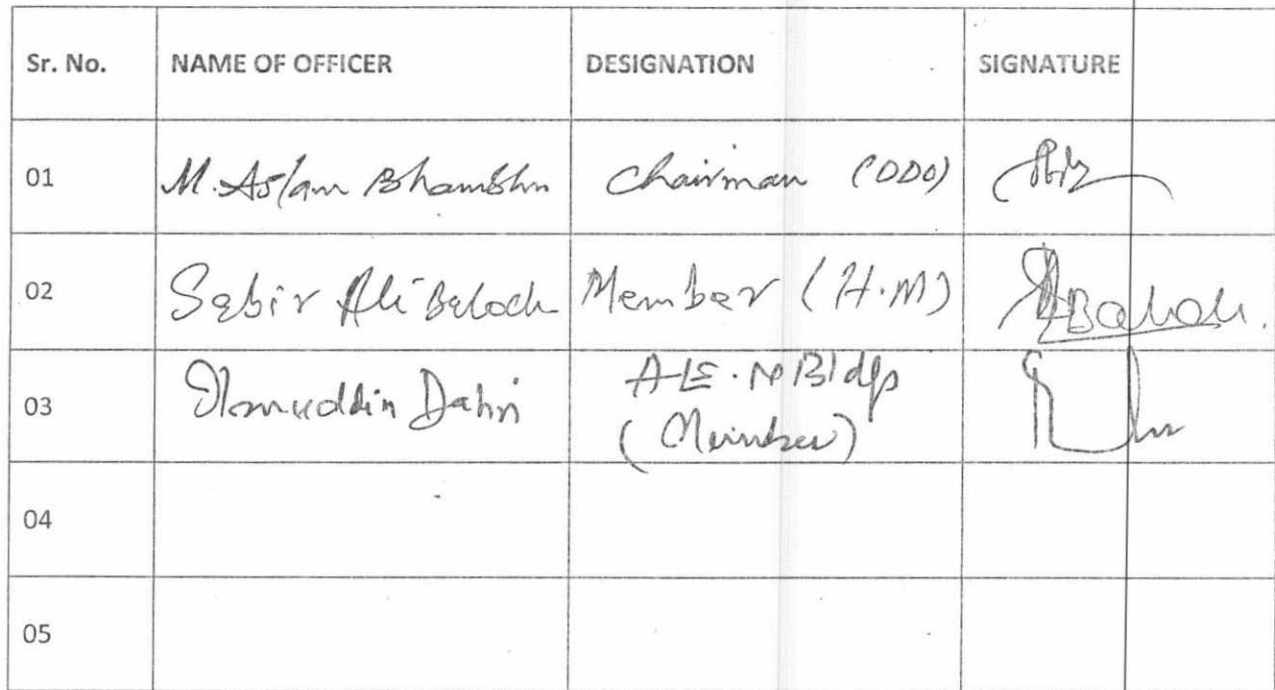 Sr. No. NAME OF OFFICER DESIGNATION SIGNATURE
01 M. Aslam Bhambhn Chairman (DDO)
02 Sabir Ali Baloch Member (H.M)
03 Dahri
(Member)
04
05